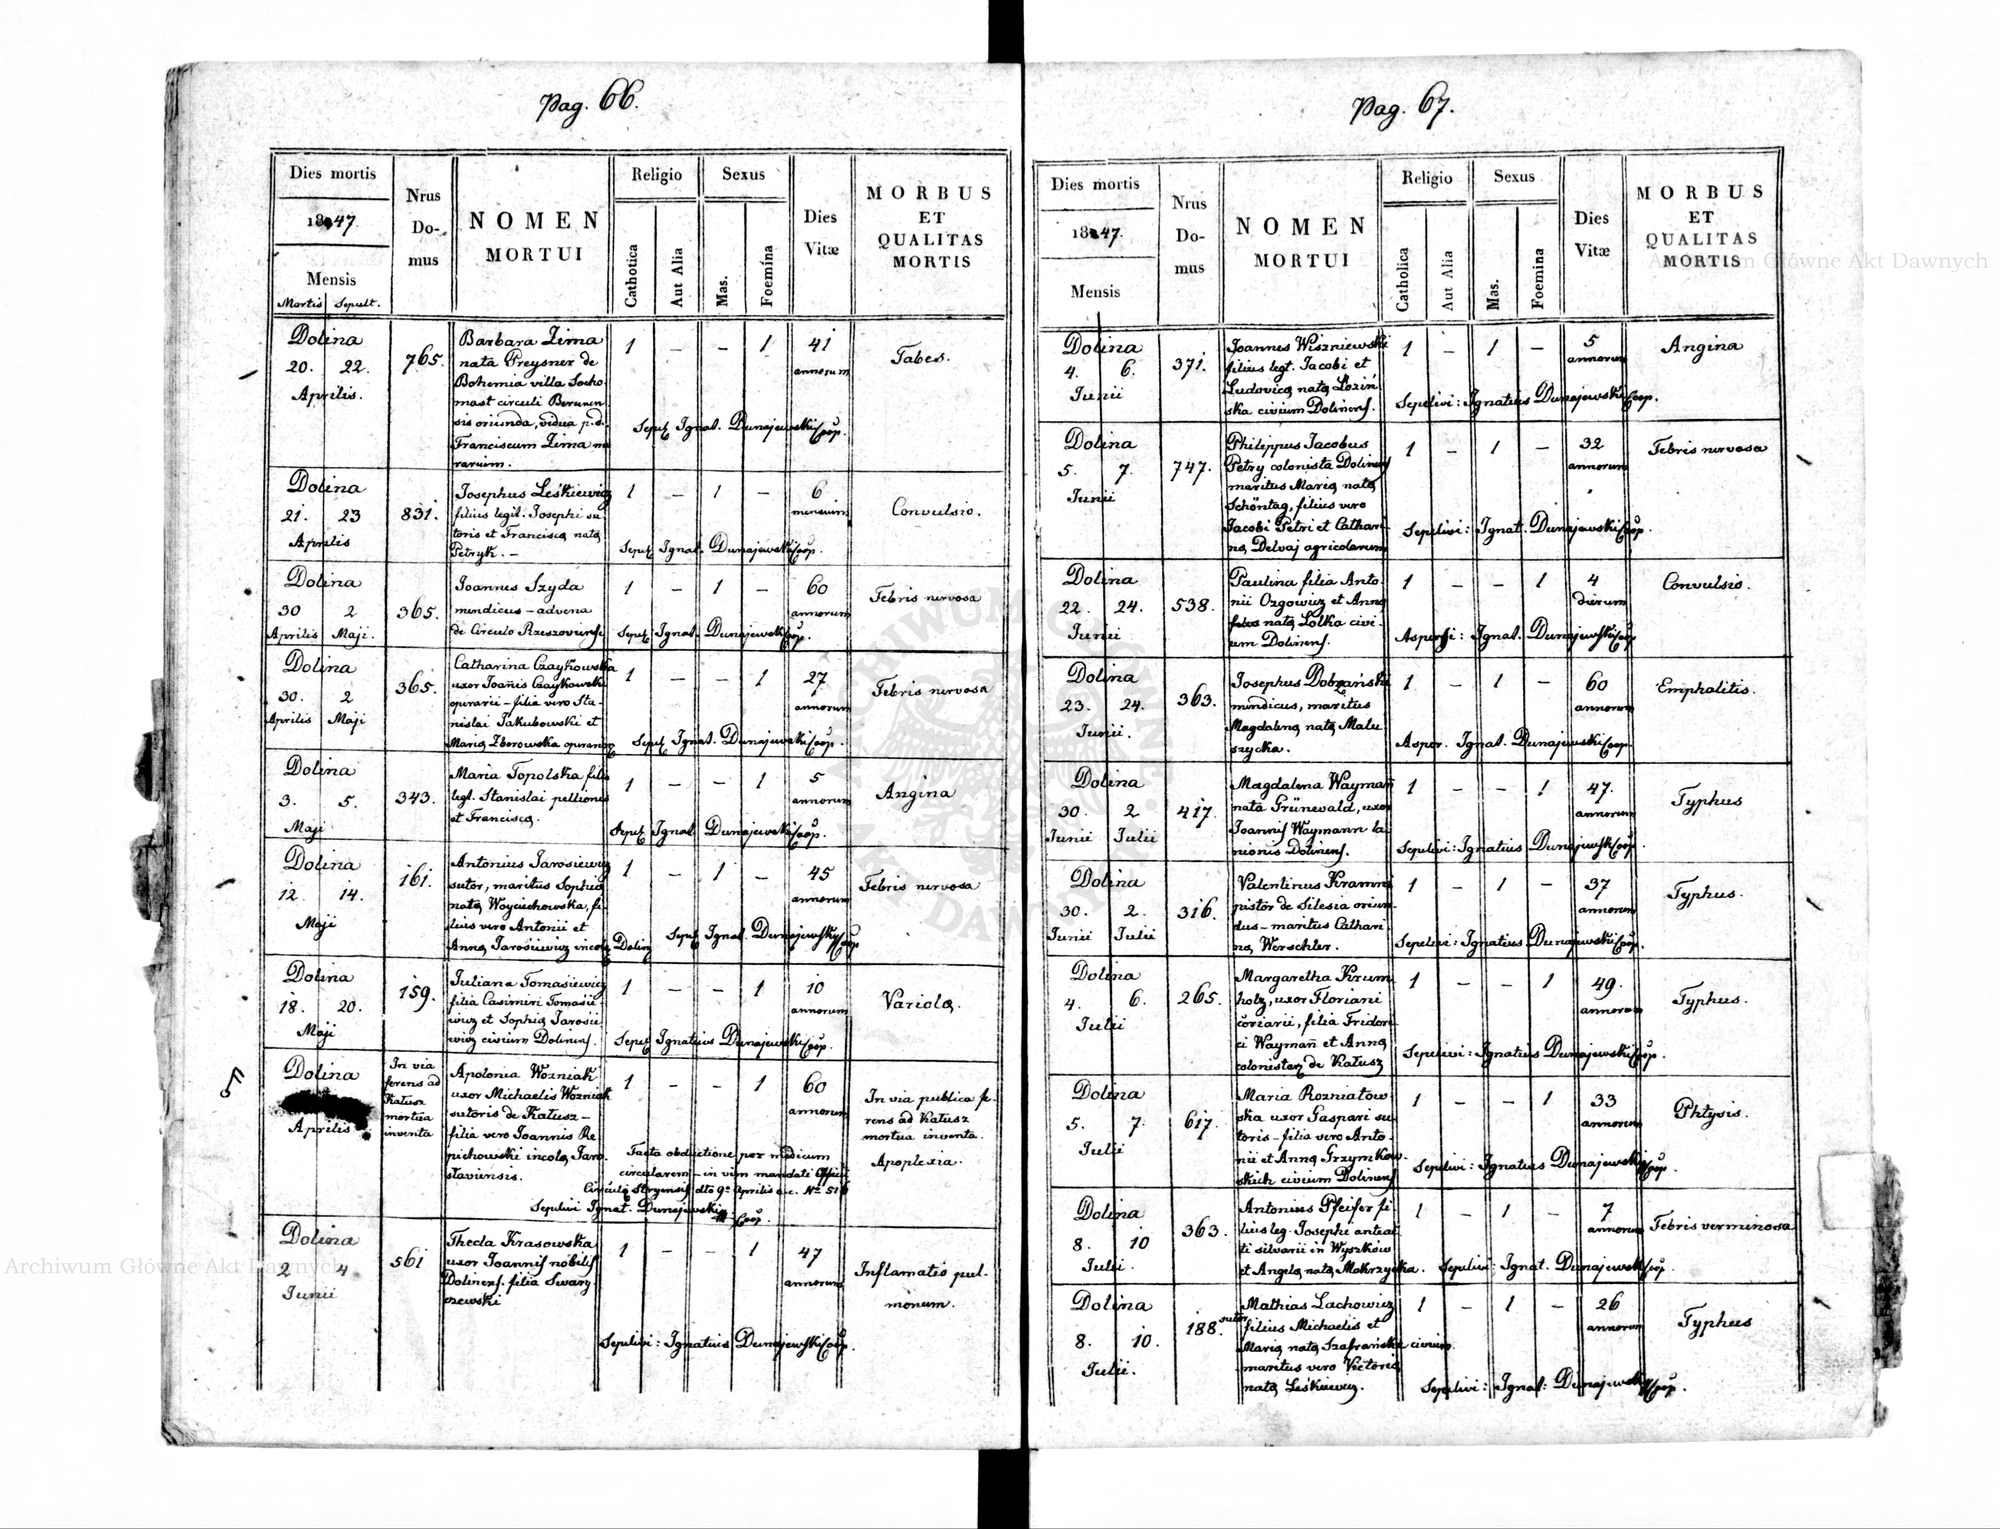 Pag. 66.
Dies mortis
1847.
Mensis
Mortis Sepult.
Nrus
Do-
mus
NOMEN
MORTUI
Religio
Cathotica
Aut Alia
Sexus
Mas.
Foemina
Dies
Vitæ
MORBUS
ET
QUALITAS
MORTIS
Dolina
20. 22.
Aprilis.
765.
Barbara Zima
nata Freysner de
Bohemia villa Socho
mast circuli Berunen
sis oriunda, vidua p. d.
Franciscum Zima mu
rarium.
1 – – 1
41
annorum
Tabes.
Sepel. Ignat. Dunajewski Coop.
Dolina
21. 23
Aprilis
831.
Josephus Leśkiewicz
filius legit. Josephi su
toris et Francisca nata
Petryk. –
1 – 1 –
6
mensium
Convulsio.
Sepel. Ignat. Dunajewski Coop.
Dolina
30 2
Aprilis Maji.
365.
Joannes Szyda
mendicus – advena
de Circulo Rzeszoviensi
1 – 1 –
60
annorum
Febris nervosa
Sepel. Ignat. Dunajewski Coop.
Dolina
30. 2
Aprilis Maji
365.
Catharina Czaykowska
uxor Joañis Czaykowski
operarii – filia vero Sta-
nislai Jakubowski et
Maria Zborowska operarior.
1 – – 1
27
annorum
Febris nervosa
Sepel. Ignat. Dunajewski Coop.
Dolina
3. 5.
Maji
343.
Maria Topolska filia
legt. Stanislai pellionis
et Francisca.
1 – – 1
5
annorum
Angina
Sepel. Ignat. Dunajewski Coop.
Dolina
12. 14.
Maji
161.
Antonius Jarosiewicz
sutor, maritus Sophia
nata Woyciechowska, fi
lius vero Antonii et
Anna Jarosiewicz incola Dolin.
1 – 1 –
45
annorum
Febris nervosa
Sepel. Ignat. Dunajewski Coop.
Dolina
18. 20.
Maji
159.
Juliana Tomasiewicz
filia Casimiri Tomasie
wicz et Sophia Jarosie
wicz civium Dolinens.
1 – – 1
10
annorum
Variola.
Sepel. Ignatius Dunajewski Coop.
Dolina
Aprilis
In via
ferens ad
Katusz
mortua
inventa
Apolonia Wozniak
uxor Michaelis Wozniak
sutoris de Katusz –
filia vero Joannis Re
pichowski incola Jaro
slaviensis.
1 – – 1
60
annorum
In via publica fe-
rens ad Katusz
mortua inventa.
Apoplexia.
Facta obductione per medicum
circularem – in vim mandati Officii
Circuli Stryensis dto 9ª Aprilis a.c. No 516
Sepelivi Ignat. Dunajewski
Coop.
Dolina
2 4
Junii
561
Thecla Krasowska
uxor Joannis nobilis
Dolinens. filia Swary
czewski
1 – – 1
47
annorum
Inflamatio pul-
monum.
Sepelivi: Ignatius Dunajewski Coop.
Pag. 67.
Dies mortis
1847.
Mensis
Nrus
Do-
mus
NOMEN
MORTUI
Religio
Catholica
Aut Alia
Sexus
Mas.
Foemina
Dies
Vitæ
MORBUS
ET
QUALITAS
MORTIS
Dolina
4. 6.
Junii
371.
Joannes Wiszniewski
filius legt. Jacobi et
Ludovica nata Loziń
ska civium Dolinens.
1 – 1 –
5
annorum
Angina
Sepelivi: Ignatius Dunajewski Coop.
Dolina
5. 7.
Junii
747.
Philippus Jacobus
Petry colonista Dolinens
maritus Maria nata
Schöntag, filius vero
Jacobi Petri et Cathari
na Delvaj agricolarum
1 – 1 –
32
annorum
Febris nervosa
Sepelivi: Ignat. Dunajewski Coop.
Dolina
22. 24.
Junii
538.
Paulina filia Anto-
nii Ozgowicz et Anna
nata Lolka civi-
um Dolinens.
1 – – 1
4
dierum
Convulsio.
Aspersi: Ignat. Dunajewski Coop
Dolina
23. 24.
Junii.
363.
Josephus Dobrzański
mendicus, maritus
Magdalena nata Malu
szycka.
1 – 1 –
60
annorum
Empholitis.
Asper. Ignat. Dunajewski Coop
Dolina
30. 2
Junii Julii
417.
Magdalena Waymañ
nata Grünewald, uxor
Joannis Waymann la
nionis Dolinens.
1 – – 1
47.
annorum
Typhus
Sepelivi: Ignatius Dunajewski Coop.
Dolina
30. 2.
Junii Julii
316.
Valentinus Kramm
pistor de Silesia oriun-
dus – maritus Cathari
na Werschler.
1 – 1 –
37
annorum
Typhus.
Sepelivi: Ignatius Dunajewski Coop.
Dolina
4. 6.
Julii
265.
Margaretha Krum
holz, uxor Floriani
coriarii, filia Frideri
ci Waymañ et Anna
colonistar. de Katusz
1 – – 1
49.
annorum
Typhus.
Sepelivi: Ignatius Dunajewski Coop.
Dolina
5. 7.
Julii
617.
Maria Rozniatow
ska uxor Gaspari su
toris – filia vero Anto-
nii et Anna Grzymkow
skich civium Dolinens
1 – – 1
33
annorum
Phtysis.
Sepelivi: Ignatius Dunajewski Coop
Dolina
8. 10
Julii.
363.
Antonius Pfeifer fi
lius leg. Josephi anteac
ti silvarii in Wyszków
et Angela nata Mokrzycka.
1 – 1 –
7
annorum
Febris verminosa
Sepelivi: Ignat. Dunajewski Coop.
Dolina
8. 10.
Julii.
188.
sutor
Mathias Lachowicz
filius Michaelis et
Maria nata Szafrańska civium
maritus vero Victoria
nata Leśkiewicz.
1 – 1 –
26
annorum
Typhus
Sepelivi: Ignat: Dunajewski Coop.
Archiwum Główne Akt Dawnych
Archiwum Główne Akt Dawnych
ARCHIWUM GŁÓWNE
AKT DAWNYCH